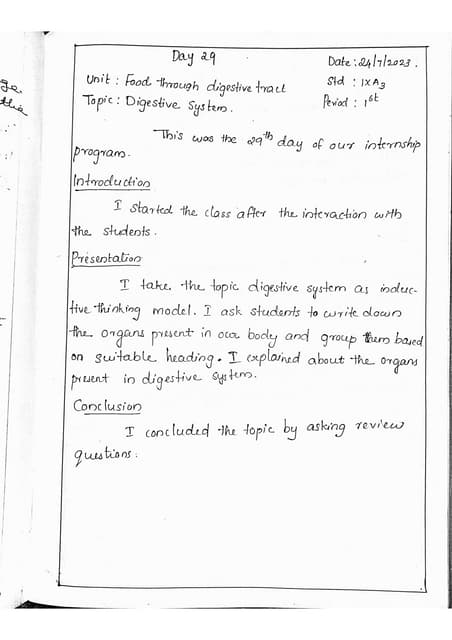 Day 29
Date : 24/7/2023.
Unit : Food through digestive tract
Std : IXA3
Topic : Digestive System.
Period : 1st
This was the 29th day of our internship
program.
Introduction
I started the class after the interaction with
the students.
Presentation
I take the topic digestive system as induc-
tive thinking model. I ask students to write down
the organs present in our body and group them based
on suitable heading. I explained about the organs
present in digestive system.
Conclusion
I concluded the topic by asking review
questions.